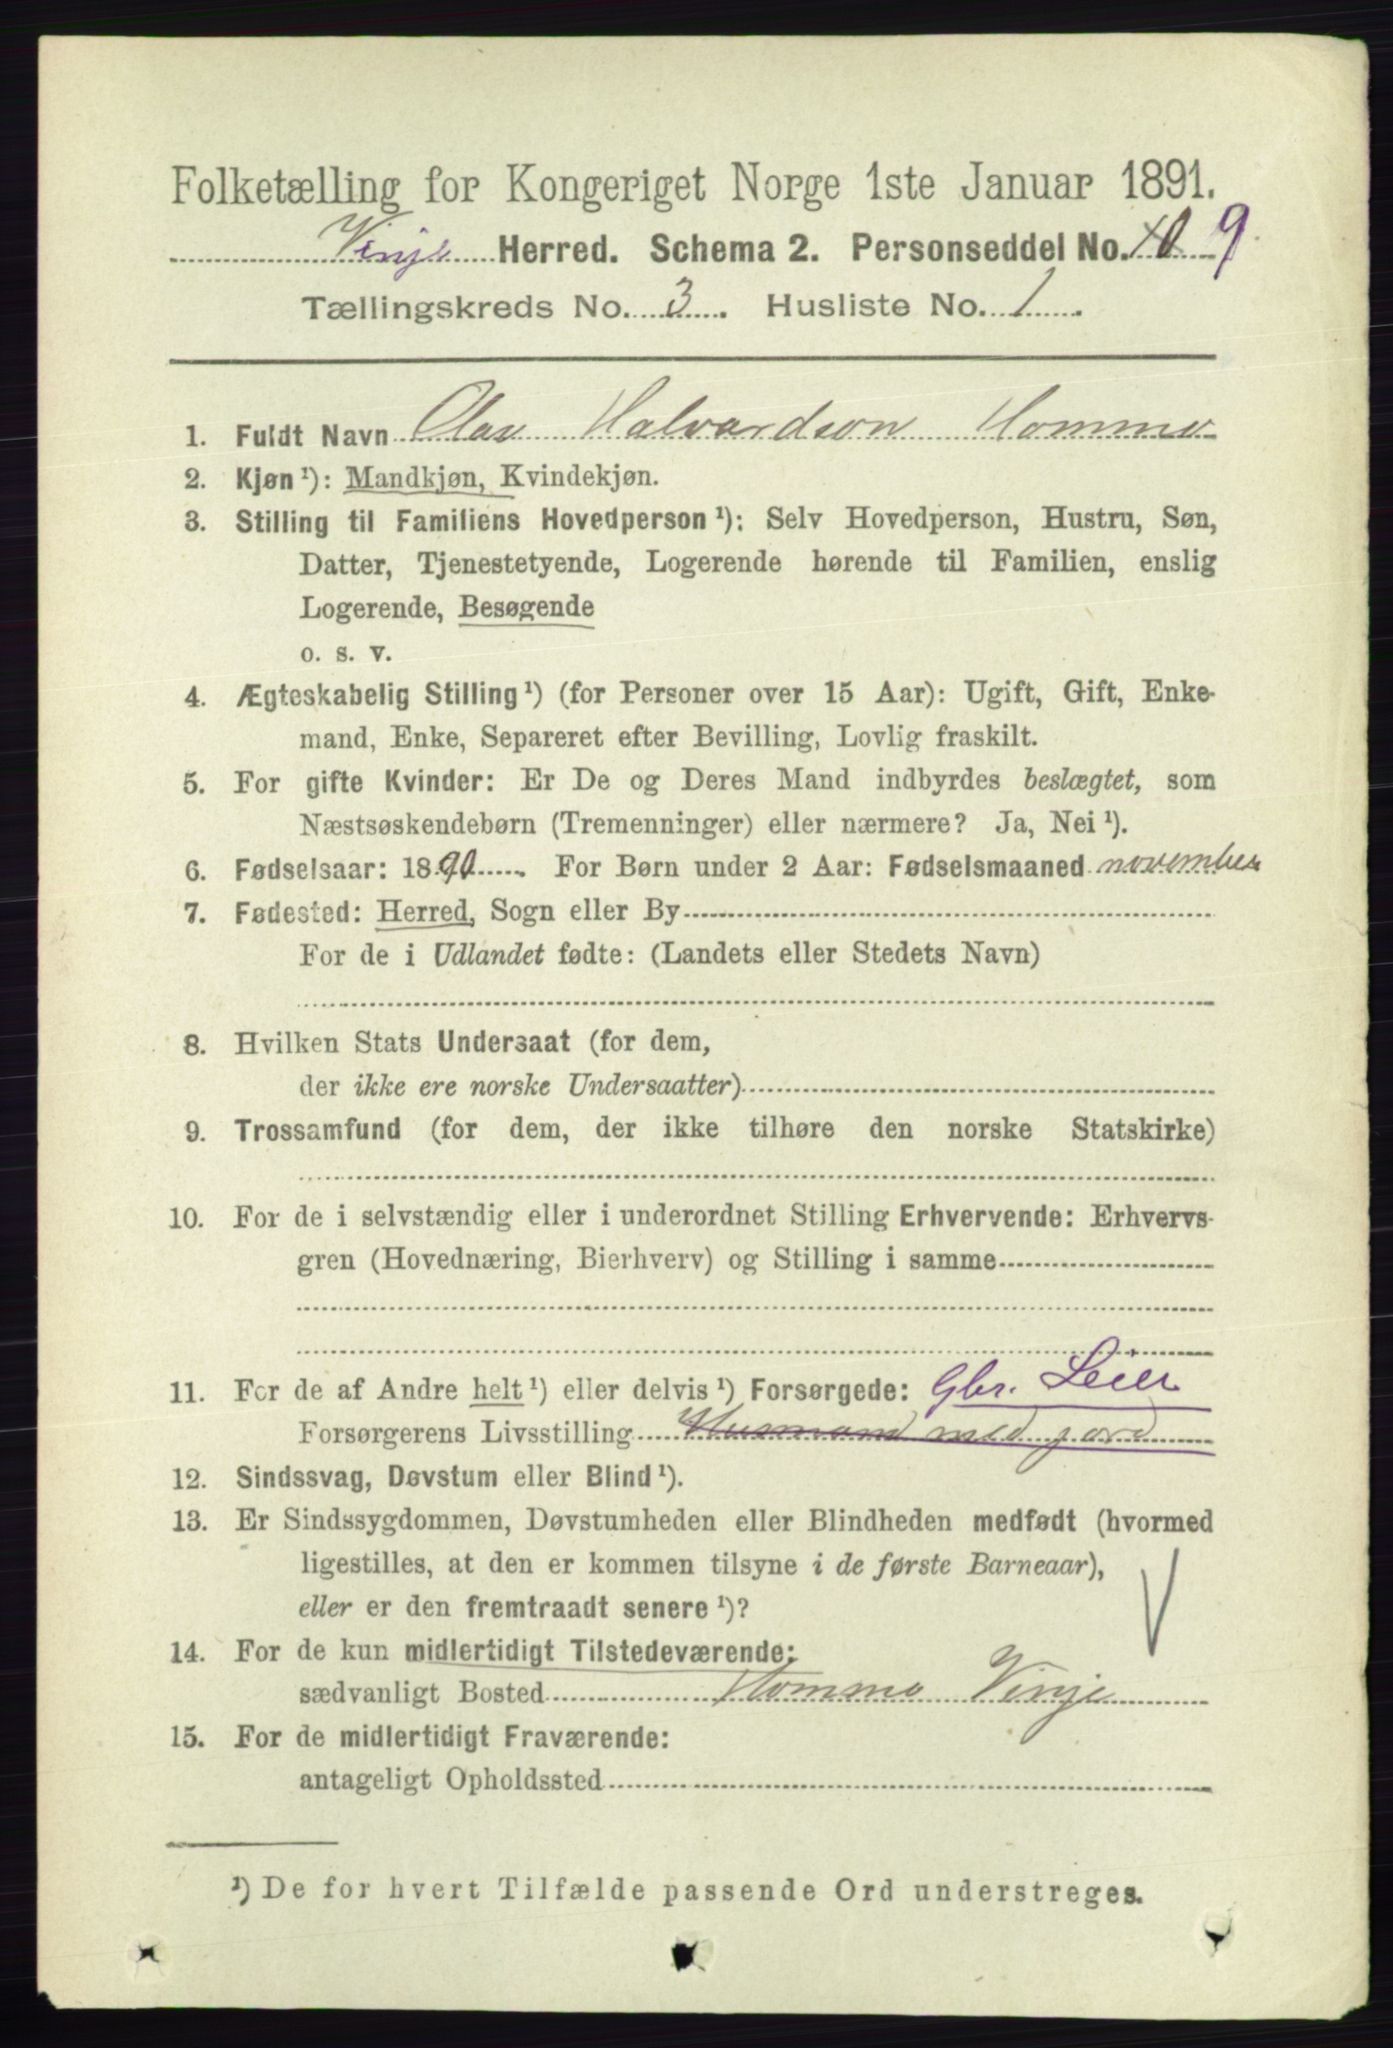 Folketælling for Kongeriget Norge 1ste Januar 1891.
Vinje Herred. Schema 2. Personseddel No. 10 9
Tællingskreds No. 3. Husliste No. 1.
1. Fuldt Navn Olav Halvardson Hommo
2. Kjøn¹): Mandkjøn, Kvindekjøn.
3. Stilling til Familiens Hovedperson¹): Selv Hovedperson, Hustru, Søn,
Datter, Tjenestetyende, Logerende hørende til Familien, enslig
Logerende, Besøgende
o. s. v.
4. Ægteskabelig Stilling¹) (for Personer over 15 Aar): Ugift, Gift, Enke-
mand, Enke, Separeret efter Bevilling, Lovlig fraskilt.
5. For gifte Kvinder: Er De og Deres Mand indbyrdes beslægtet, som
Næstsøskendebørn (Tremenninger) eller nærmere? Ja, Nei¹).
6. Fødselsaar: 1890. For Børn under 2 Aar: Fødselsmaaned november
7. Fødested: Herred, Sogn eller By
For de i Udlandet fødte: (Landets eller Stedets Navn)
8. Hvilken Stats Undersaat (for dem,
der ikke ere norske Undersaatter)
9. Trossamfund (for dem, der ikke tilhøre den norske Statskirke)
10. For de i selvstændig eller i underordnet Stilling Erhvervende: Erhvervs-
gren (Hovednæring, Bierhverv) og Stilling i samme
11. For de af Andre helt¹) eller delvis¹) Forsørgede: Gbr. Leier
Forsørgerens Livsstilling Husmand med jord
12. Sindssvag, Døvstum eller Blind¹).
13. Er Sindssygdommen, Døvstumheden eller Blindheden medfødt (hvormed
ligestilles, at den er kommen tilsyne i de første Barneaar),
eller er den fremtraadt senere¹)?
14. For de kun midlertidigt Tilstedeværende:
sædvanligt Bosted Hommo Vinje
15. For de midlertidigt Fraværende:
antageligt Opholdssted
¹) De for hvert Tilfælde passende Ord understreges.